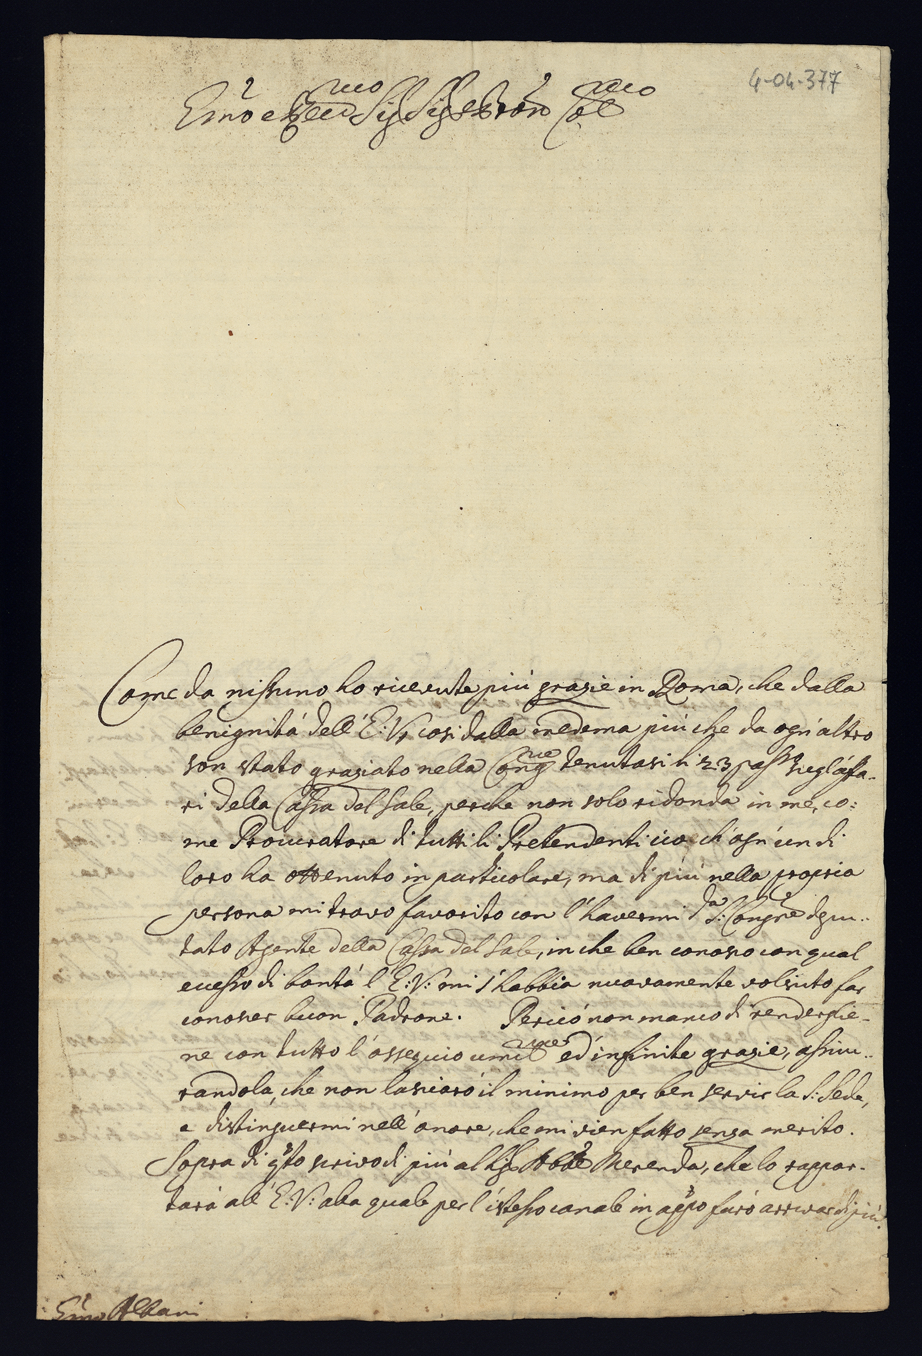 4-04-377
Emo e Rmo Sig Sig e Pron Colmo
Come da nissuno ho ricevute più grazie in Roma, che dalla
benignità dell' E: V, così dalla medema più che da ogn' altro
son stato graziato nella Congne tenutasi li 23 pass negl' affa-
ri della Cassa del Sale, perche non solo ridonda in me, co:
me Procuratore di tutti li Pretendenti ciò, ch' ogn' un di
loro ha ottenuto in particolare, ma di più nella propria
persona mi trovo favorito con l' havermi da S: Congne depu-
tato Agente della Cassa del Sale, in che ben conosco con qual
eccesso di bontà l' E: V: mi s' habbia nuovamente volsuto far
conoscer buon Padrone. Perciò non manco di renderglie-
ne con tutto l' ossequio umilme ed' infinite grazie, assicu-
randola, che non lasciarò il minimo per ben servir la S: Sede,
e distinguermi nell' onore, che mi vien fatto senza merito.
Sopra di qsto scrivo di più al Sig Abbe Merenda, che lo rappor-
tarà all' E: V: alla quale per l' istesso canale in appo farò arrivar di più.
Emo Albani